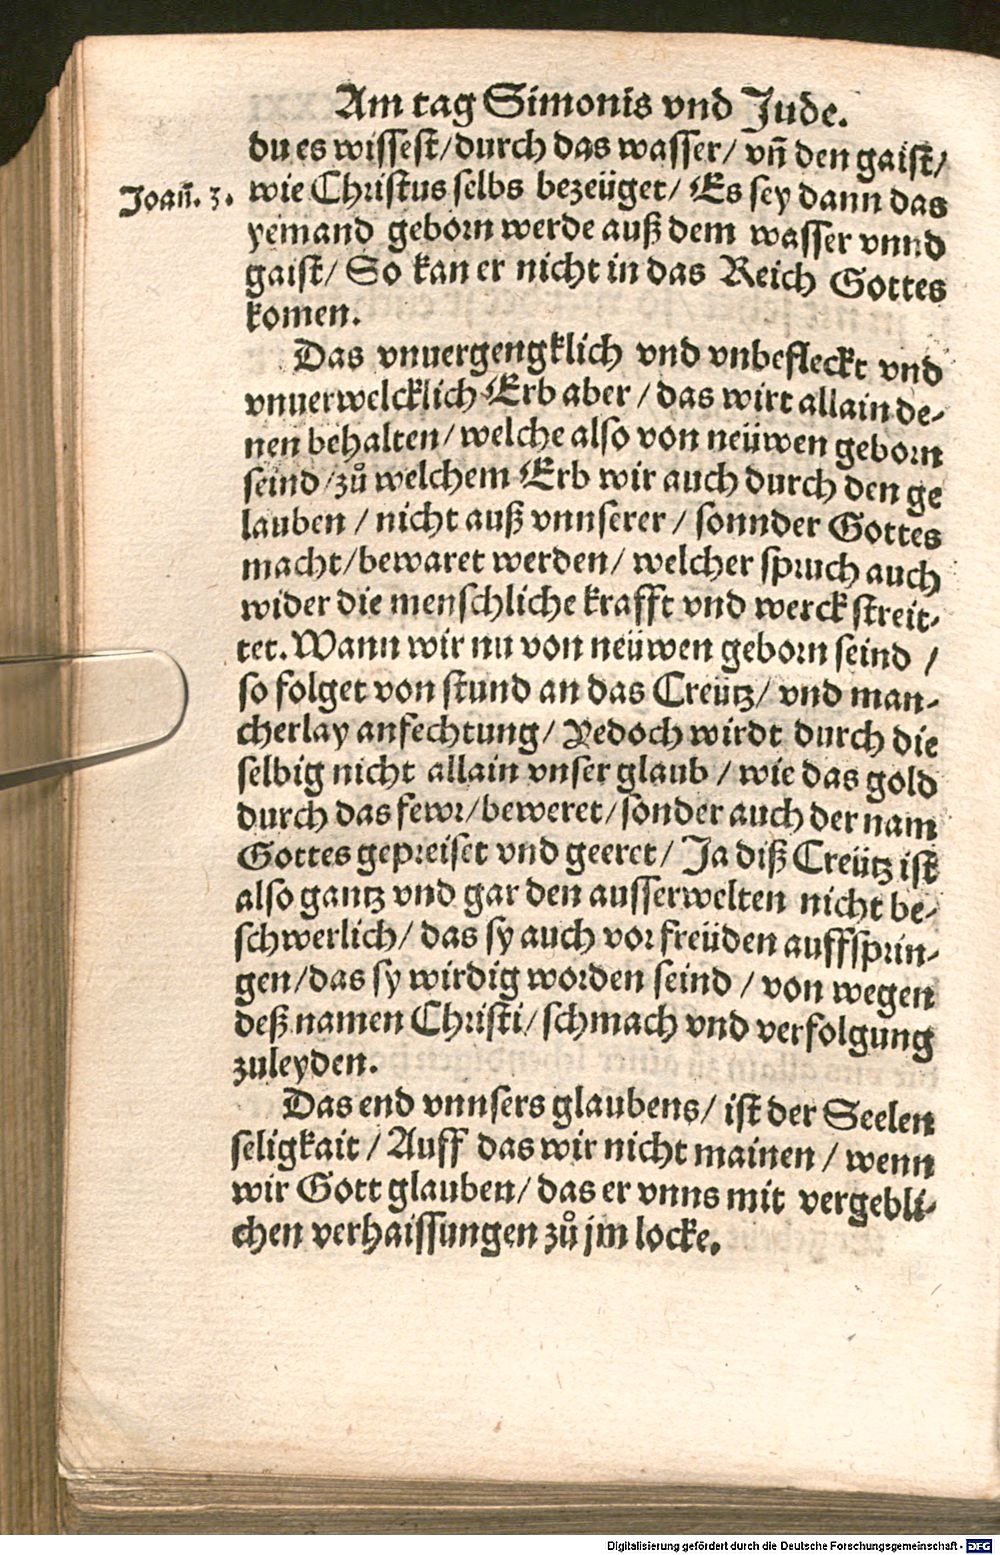 Am tag Simonis vnd Jude.
du es wissest/durch das wasser/ vñ den gaist/
Joañ. 3.
wie Christus selbs bezeüget/ Es sey dann das
yemand geborn werde auß dem wasser vnnd
gaist/ So kan er nicht in das Reich Gottes
komen.
Das vnuergengklich vnd vnbefleckt vnd
vnuerwelcklich Erb aber / das wirt allain de-
nen behalten/ welche also von neüwen geborn
seind /zů welchem Erb wir auch durch den ge
lauben / nicht auß vnnserer / sonnder Gottes
macht/bewaret werden/ welcher spruch auch
wider die menschliche krafft vnd werck streit-
tet. Wann wir nu von neüwen geborn seind /
so folget von stund an das Creütz/ vnd man-
cherlay anfechtung/ Yedoch wirdt durch die
selbig nicht allain vnser glaub / wie das gold
durch das fewr/beweret/sonder auch der nam
Gottes gepreiset vnd geeret/ Ja diß Creütz ist
also gantz vnd gar den ausserwelten nicht be-
schwerlich/ das sy auch vor freüden auffsprin-
gen/das sy wirdig worden seind / von wegen
deß namen Christi/ schmach vnd verfolgung
zuleyden.
Das end vnnsers glaubens/ ist der Seelen
seligkait / Auff das wir nicht mainen / wenn
wir Gott glauben/ das er vnns mit vergebli-
chen verhaissungen zů jm locke.
Digitalisierung gefördert durch die Deutsche Forschungsgemeinschaft - DFG